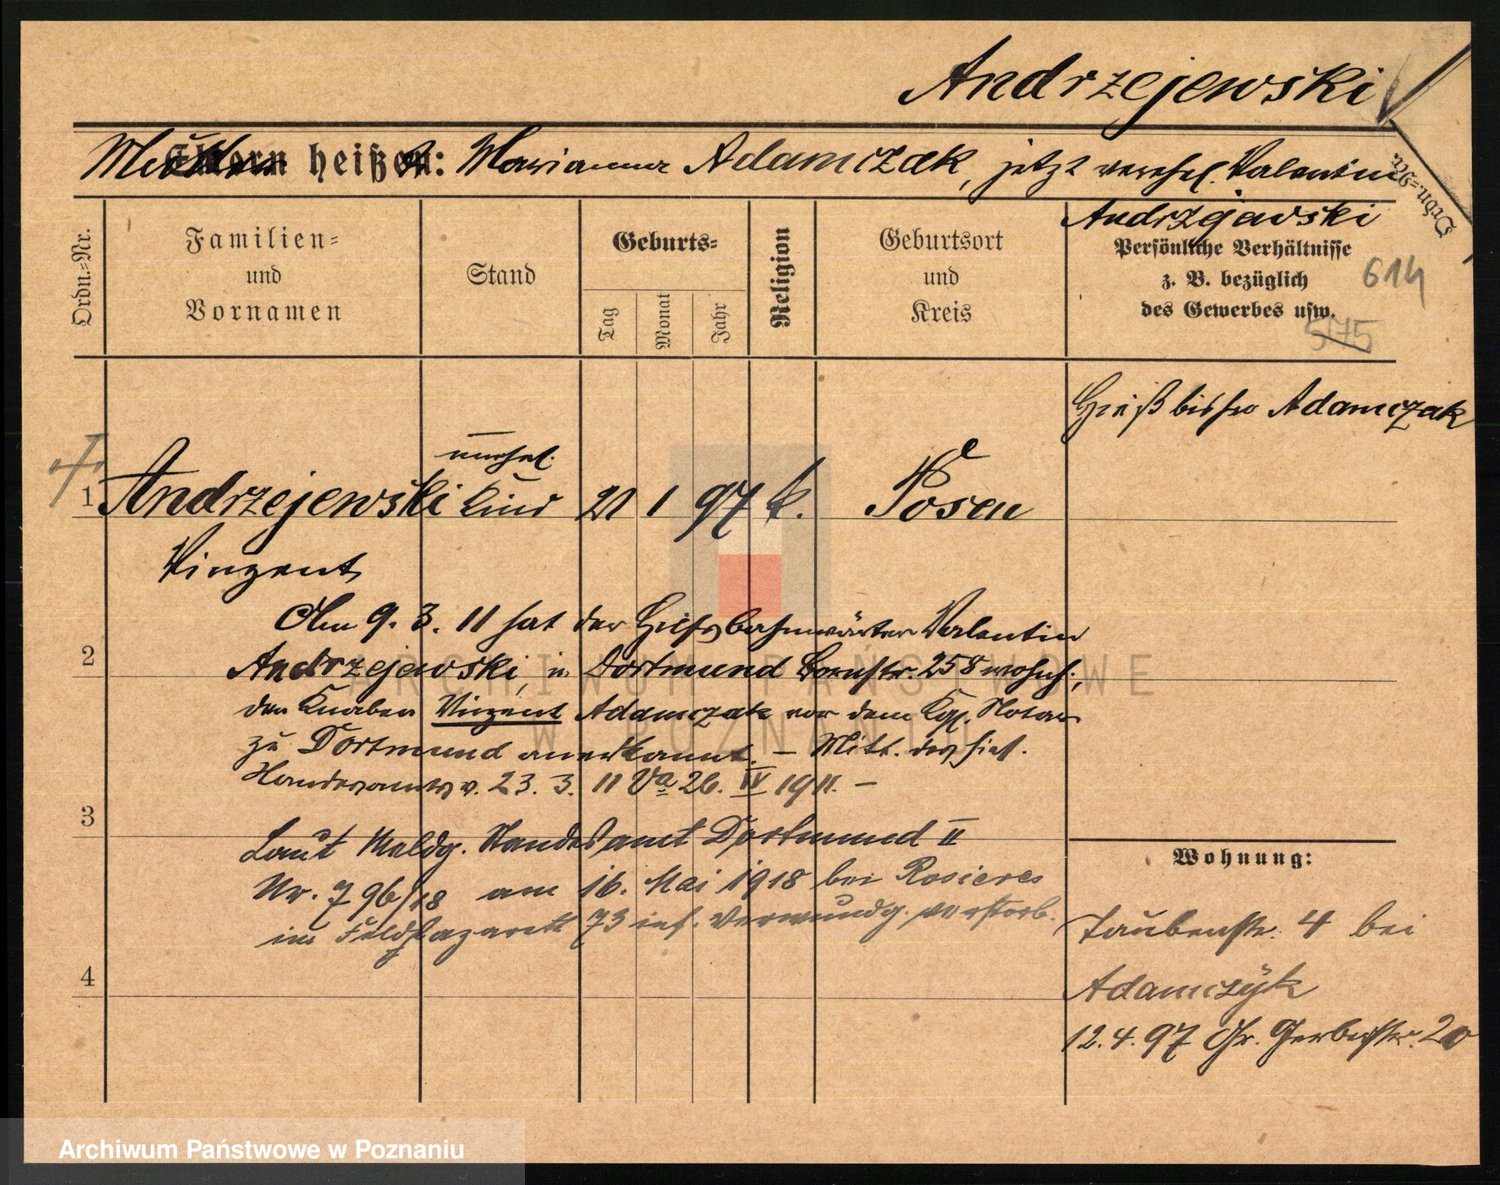 Andrzejewski
Mutter heißt: Marianna Adamczak, jetzt verehel. Valentin
Andrzejewski
Ordn.=Nr.
Ordn.=Nr.
Familien=
und
Vornamen
Stand
Geburts=
Tag
Monat
Jahr
Religion
Geburtsort
und
Kreis
Persönliche Verhältnisse
z. B. bezüglich
des Gewerbes usw.
614
5175
Hieß bisher Adamczak
unehel.
1 Andrzejewski Kind 21 1 97 k. Posen
Vinzent
Am 9. 3. 11 hat der Hilfsbahnwärter Valentin
2
Andrzejewski, in Dortmund Bornstr. 258 wohnh.,
den Knaben Vinzent Adamczak vor dem Kgl. Notar
zu Dortmund anerkannt. — Mitt. des hies.
Standesamts v. 23. 3. 11 Va 26. IV 1911. —
3
Laut Meldg. Standesamt Dortmund II
Nr. 796/18 am 16. Mai 1918 bei Rosieres
im Feldlazarett 73 inf. Verwundg. verstorb.
4
Wohnung:
Taubenstr. 4 bei
Adamczyk
12.4.97 Gr. Gerberstr. 20
ARCHIWUM PAŃSTWOWE
W POZNANIU
Archiwum Państwowe w Poznaniu